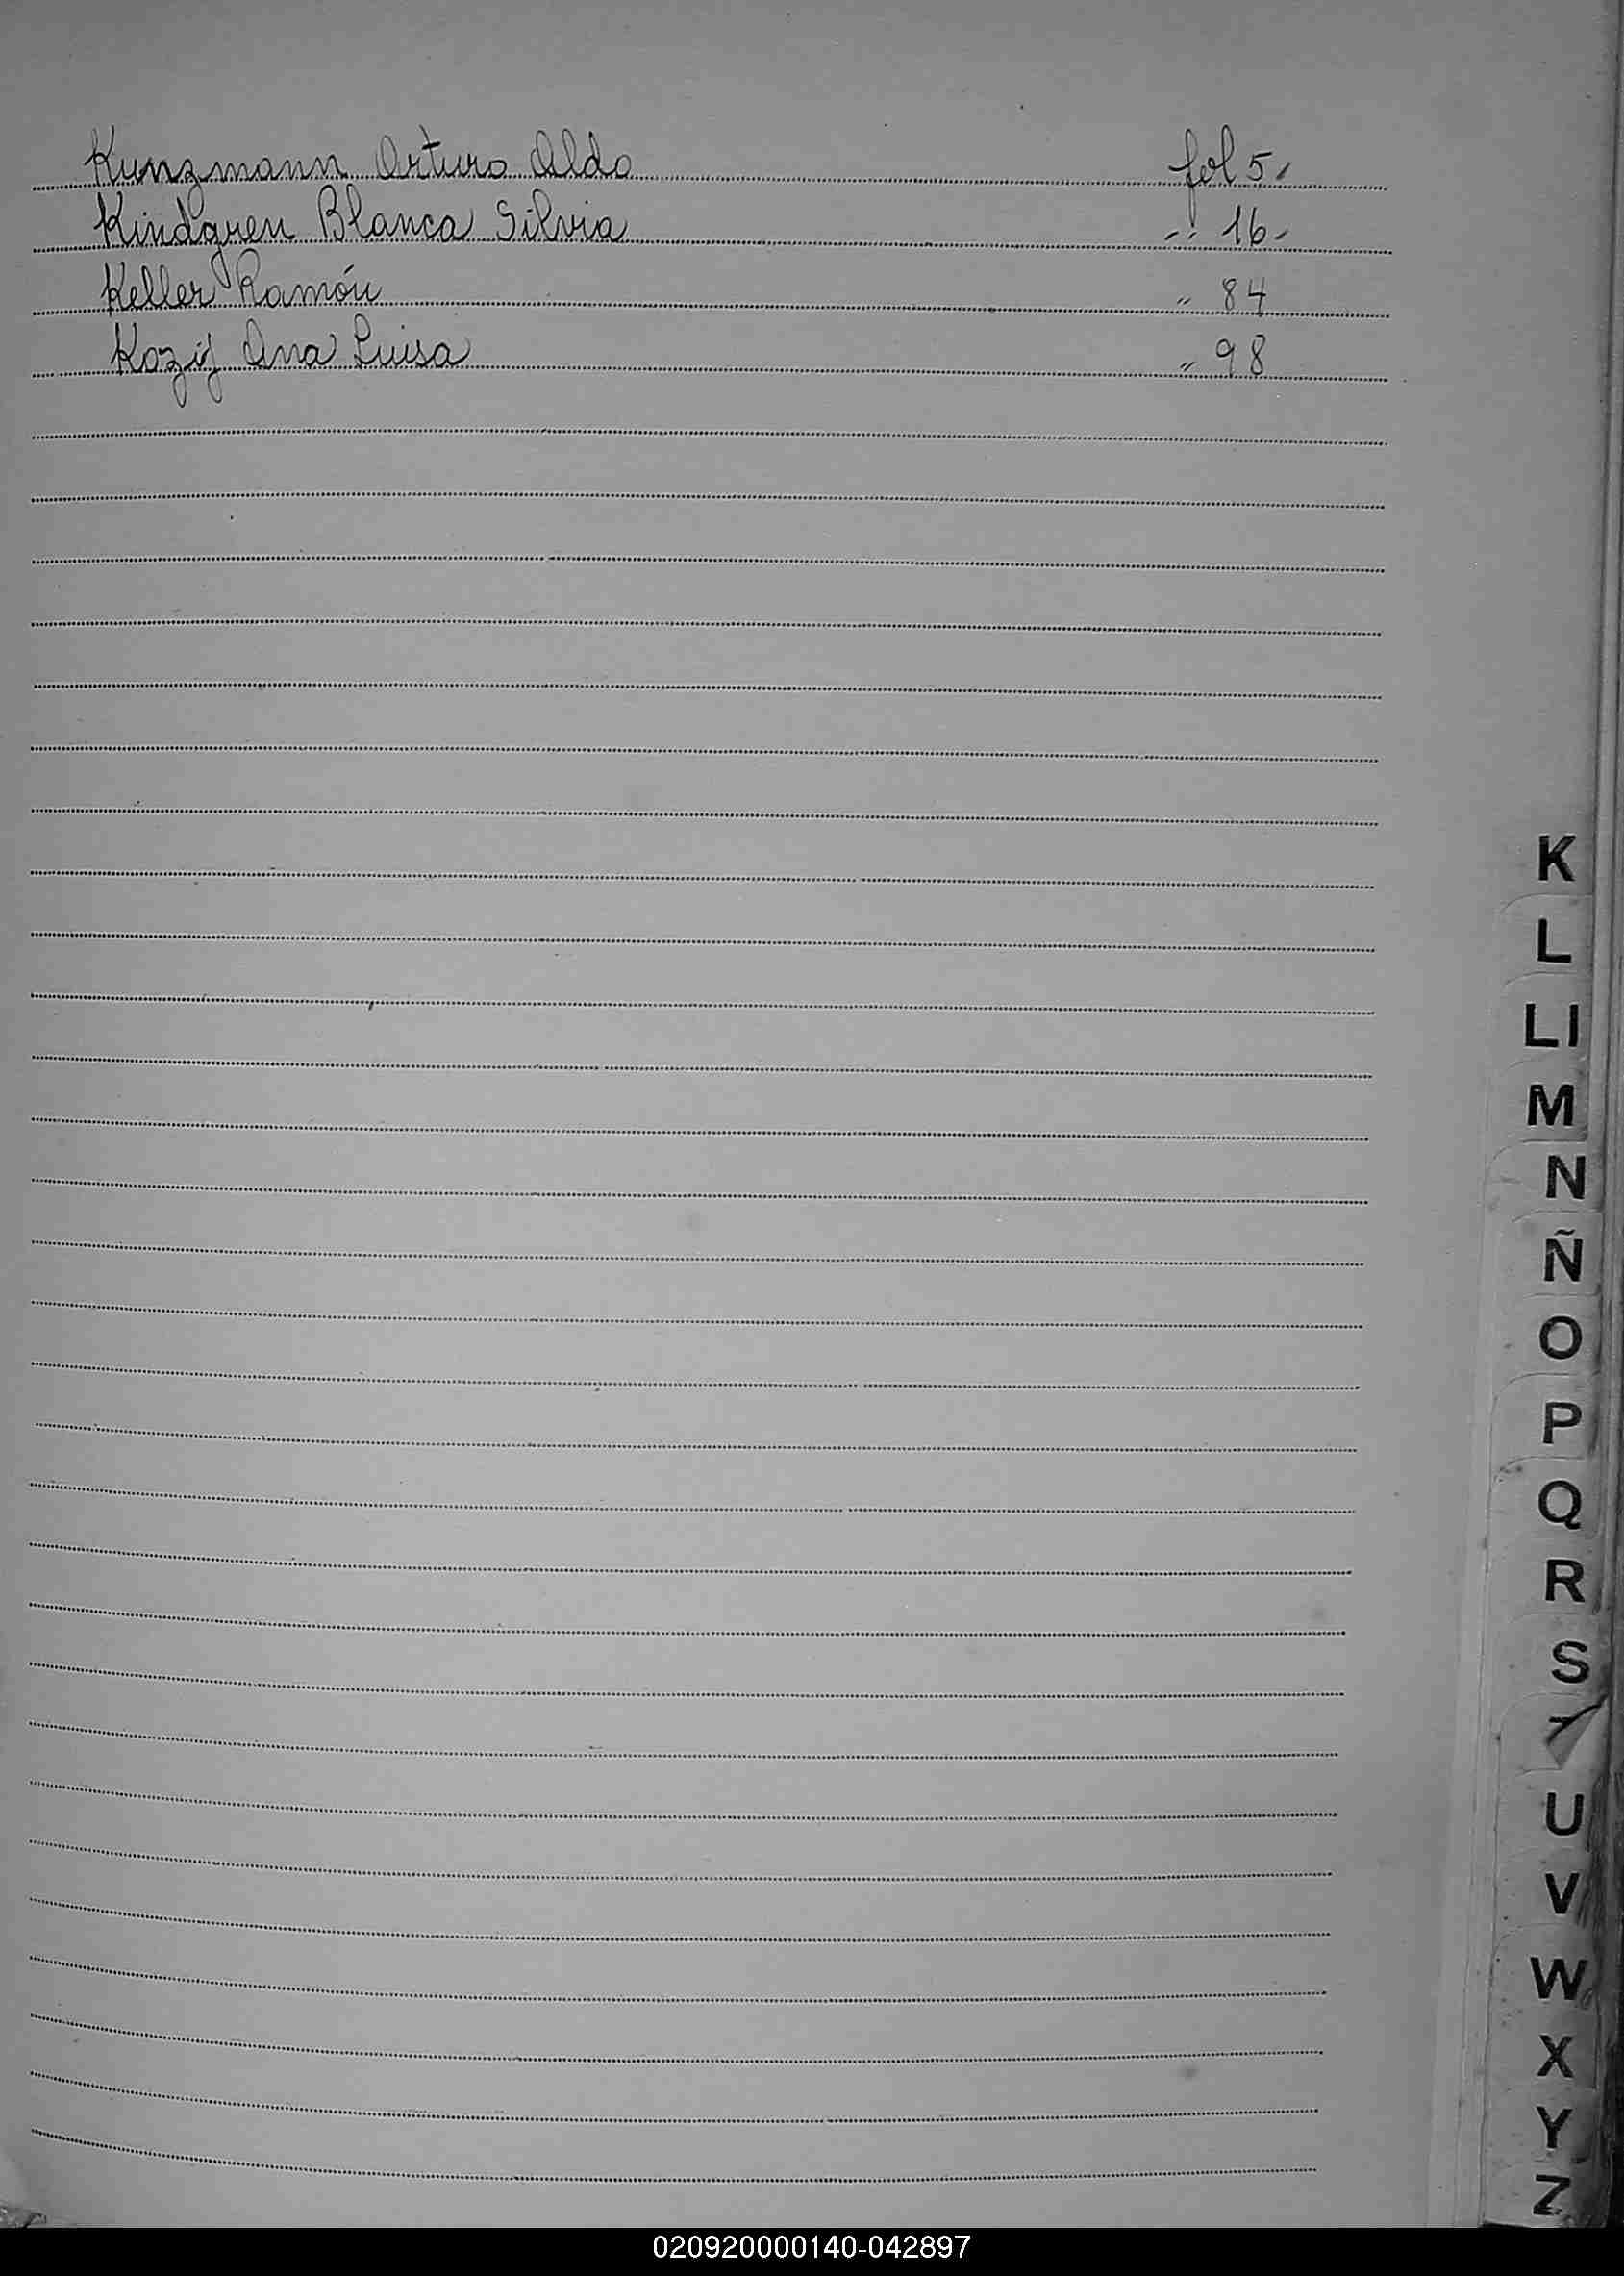 Kunzmann Arturo Aldo fol 5.
Kindgren Blanca Silvia " 16-
Keller Ramón " 84
Kozij Ana Luisa " 98
K
L
Ll
M
N
Ñ
O
P
Q
R
S
U
V
W
X
Y
Z
020920000140-042897